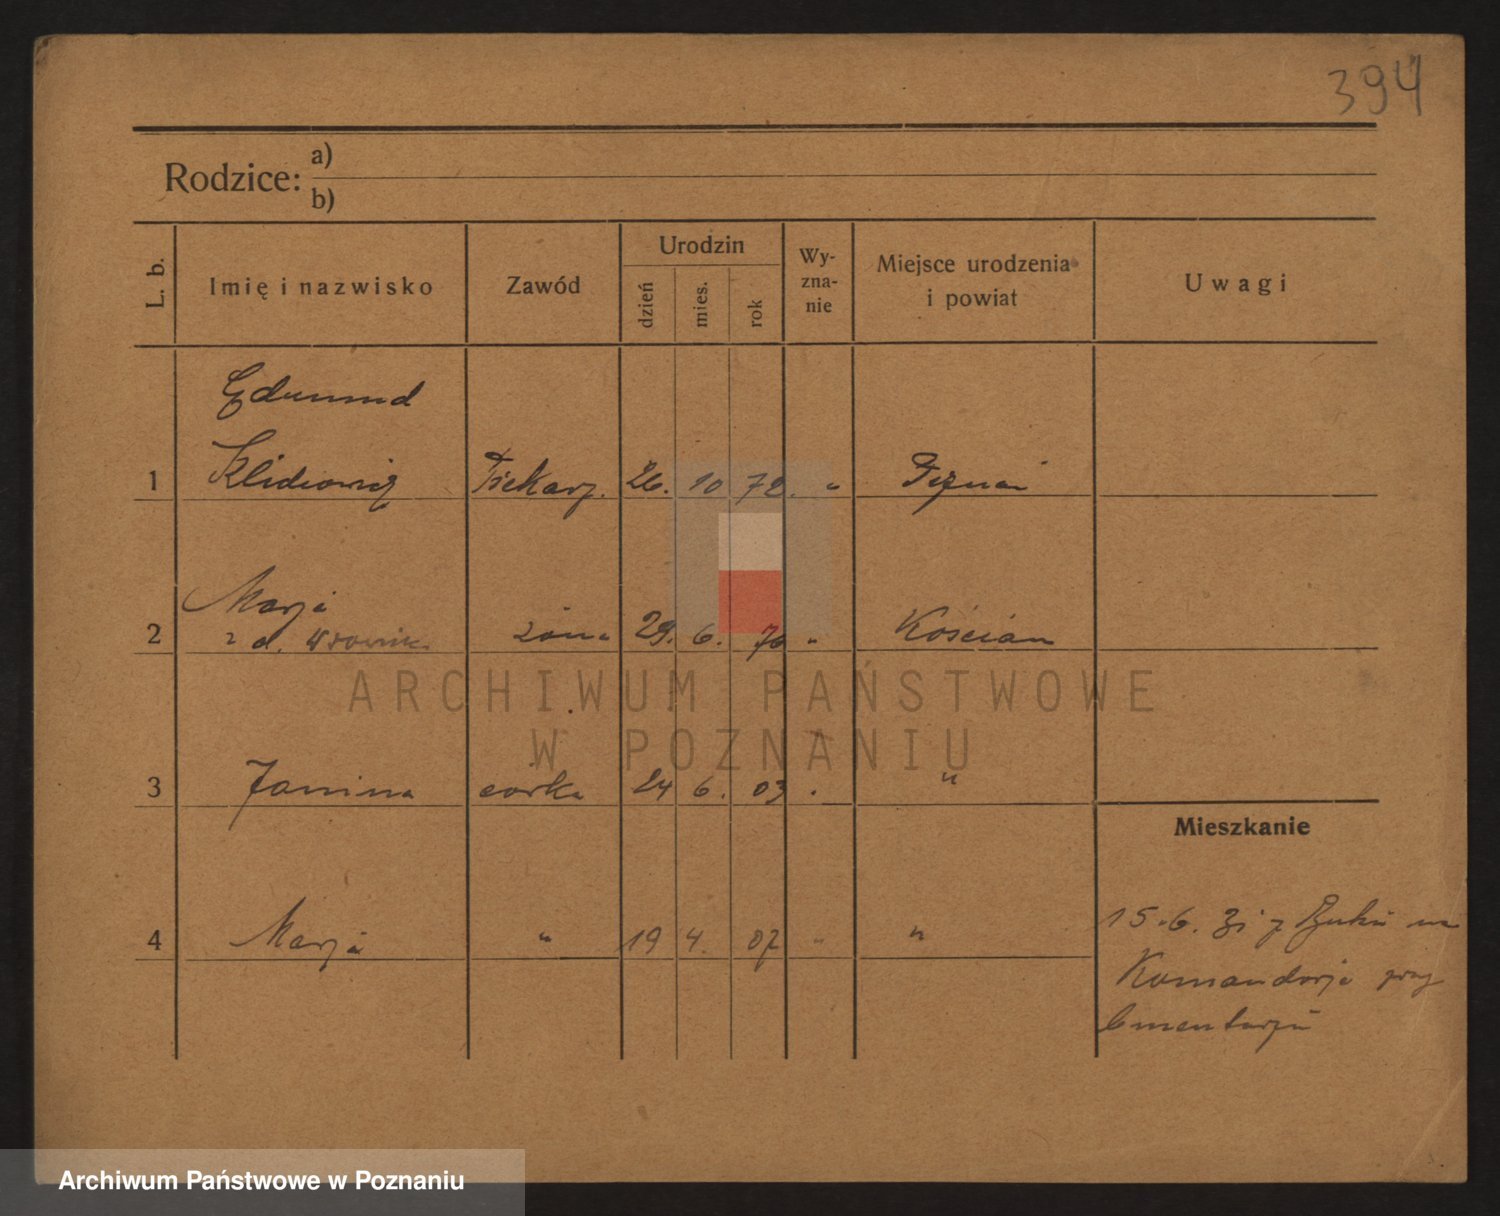 394
Rodzice: a)
b)
L. b. Imię i nazwisko Zawód Urodzin dzień mies. rok Wy-zna-nie Miejsce urodzenia i powiat Uwagi
Edmund
1 Piekarz. 26. 10 72. "
Marja
2 z d. żona 29. 6. 76 " Kościan
ARCHIWUM PAŃSTWOWE
W POZNANIU
3 Janina córka 24 6. 03 "
Mieszkanie
4 Marja " 19 4. 07 " "
15.6. 31 z Buku na
Komandorja przy
Cmentarzu
Archiwum Państwowe w Poznaniu